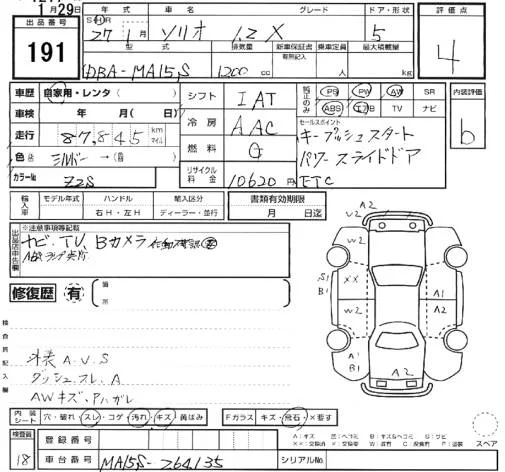 1月29日
出品番号
191
年式
車名
グレード
ドア・形状
評価点
27年1月
ソリオ
1.2 X
5
4
型式
排気量
新車保証書
乗車定員
最大積載量
有無記入
DBA-MA15S
1200 cc
人
kg
車歴
自家用・レンタ( )
シフト
IAT
純正のみ
PS
PW
AW
SR
ABS
エアB
TV
ナビ
内装評価
b
車検
年 月( 日)
冷房
AAC
セールスポイント
キープッシュスタート
パワースライドドア
ETC
走行
87,845
km
マイル
燃料
G
色
シルバー→( )
カラーNo
Z2S
リサイクル料金
10620円
輸入車
モデル年式
ハンドル
輸入区分
右H・左H
ディーラー・並行
書類有効期限
月 日迄
出品店申告欄
※注意事項等記載
ナビ・TV、Bカメラ
ABSランプ点灯
修復歴
有
箇所
検査員記入欄
外装 A.U.S
ダッシュスレ.A
AWキズ、ハガレ
A2
V2
W2
W2
S1
B1
XX
W2
A1
A2
A1
B1
U2
A2
内装シート
穴・破れ・スレ・コゲ・汚れ・キズ・黄ばみ
Fガラス
キズ・飛石・×要す
検査員
18
登録番号
車台番号
MA15S-264135
シリアルNo.
A:キズ
U:ヘコミ
B:キズ&ヘコミ
S:サビ
スペア